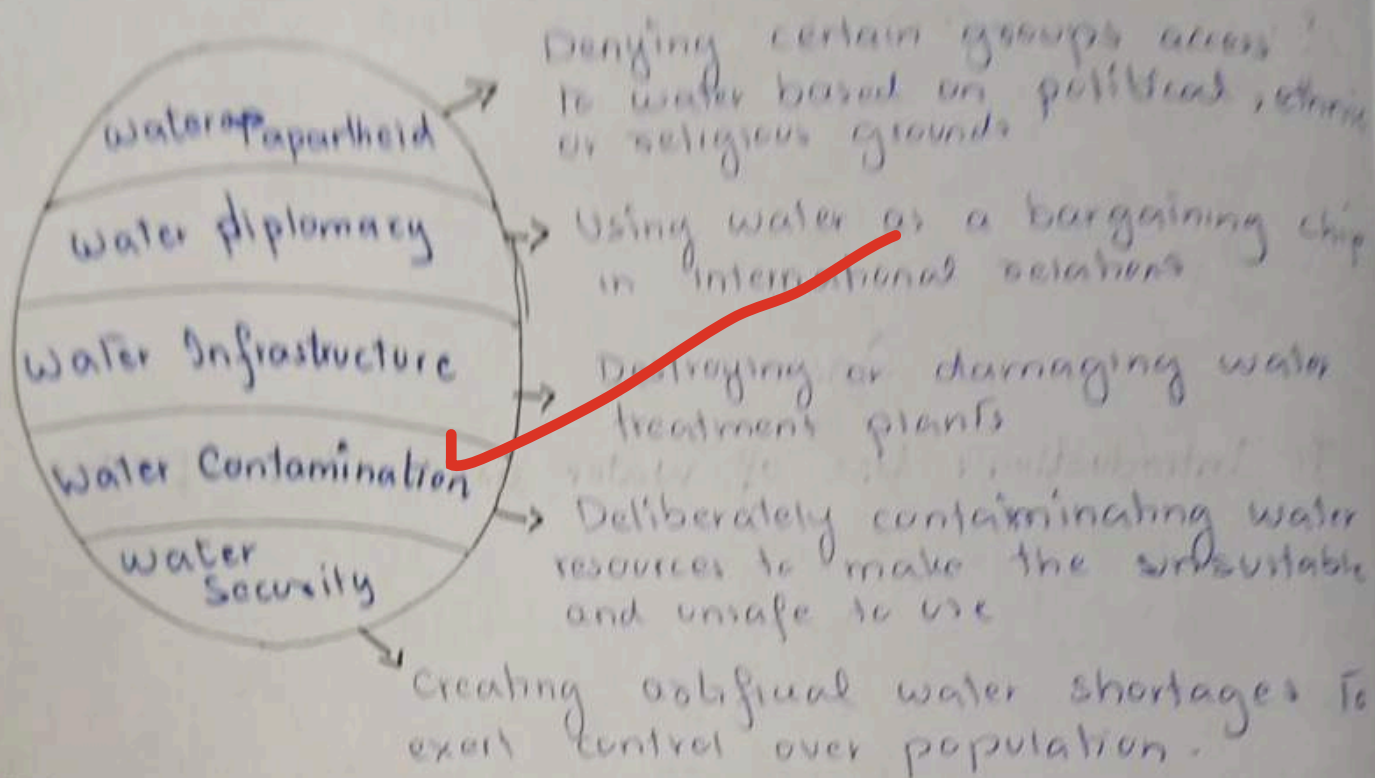 water apartheid
Denying certain groups access
to water based on political, ethnic
or religious grounds
water diplomacy
Using water as a bargaining chip
in international relations
water Infrastructure
Destroying or damaging water
treatment plants
water Contamination
Deliberately contaiminating water
resources to make the unsuitable
and unsafe to use
water
Security
Creating artificial water shortages to
exert control over population.